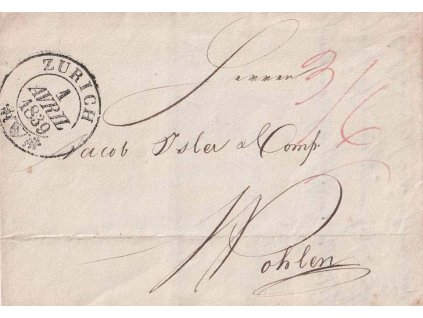 ZURICH
1
AVRIL
1839
Herren
3/6
Jacob Isler & Comp.
Wohlen